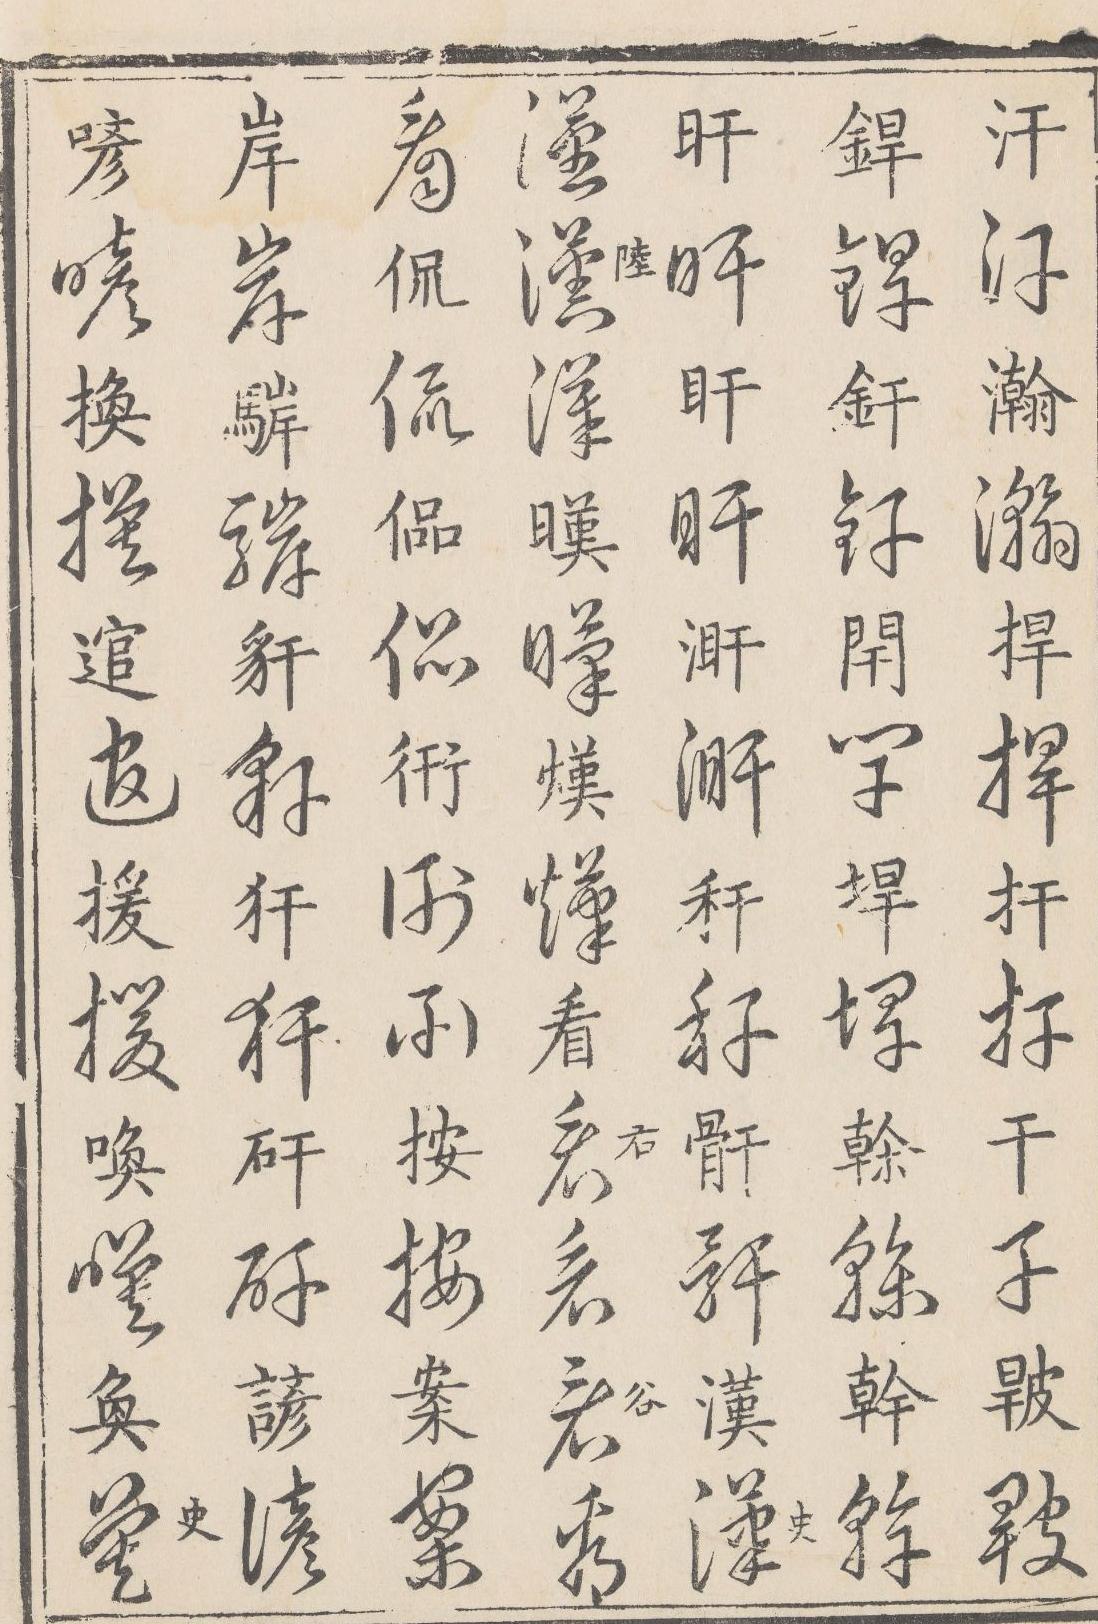 汗汗瀚瀚捍捍扞扞干干皯皯
銲銲釬釬閈閈垾垾榦榦幹幹
旰旰盰盰漧漧秆秆骭骭漢漢史
漢漢陸漢暵暵熯熯看看右看看谷看
看侃侃偘偘衎衎衎按按案案
岸岸騂騂豻豻犴犴矸矸諺諺
喭喭換換逭逭援援喚喚奐奐史